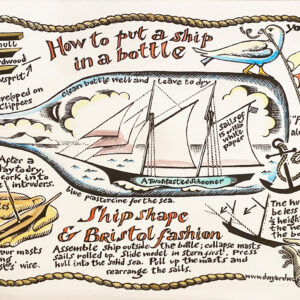 How to put a ship
in a bottle
hull
rdwood
wsprit.
eveloped on
Clippers
clean bottle well and leave to dry
Sails of
white
paper
After a
day to dry,
cork in to
intruders.
A Two Masted Schooner
blue plasticine for the sea.
Ship shape
& Bristol fashion
Assemble ship outside the bottle; collapse masts
sails rolled up. Slide model in stern first. Press
hull into the solid sea. Pull up the masts and
rearrange the sails.
your masts
wire.
yo
The hu
be less
& beis
the ne
the bo